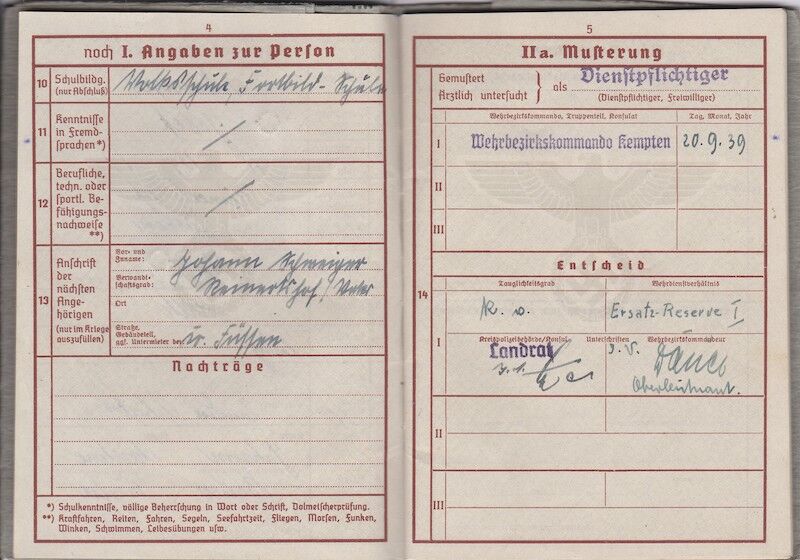 4
noch I. Angaben zur Person
10 Schulbildg. (nur Abschluß) Volksschule, Fortbild- Schule
11 Kenntnisse in Fremdsprachen *) ./.
12 Berufliche, techn. oder sportl. Befähigungsnachweise **) ./.
13 Anschrift der nächsten Angehörigen (nur im Kriege auszufüllen)
Vor- und Zuname: Johann Schweiger
Verwandtschaftsgrad: Vater
Ort
Straße, Gebäudeteil, ggf. Untermieter bei: Füssen
Nachträge
*) Schulkenntnisse, völlige Beherrschung in Wort oder Schrift, Dolmetscherprüfung.
**) Kraftfahren, Reiten, Fahren, Segeln, Seefahrtzeit, Fliegen, Morsen, Funken,
Winken, Schwimmen, Leibesübungen usw.
5
IIa. Musterung
Gemustert
Ärztlich untersucht } als Dienstpflichtiger
(Dienstpflichtiger, Freiwilliger)
Wehrbezirkskommando, Truppenteil, Konsulat Tag, Monat, Jahr
I Wehrbezirkskommando Kempten 20.9.39
II
III
14
Entscheid
Tauglichkeitsgrad Wehrdienstverhältnis
I k. v. Ersatz-Reserve I
Kreispolizeibehörde/Konsul Unterschriften Wehrbezirkskommandeur
Landrat J. V.
Oberleutnant.
II
III